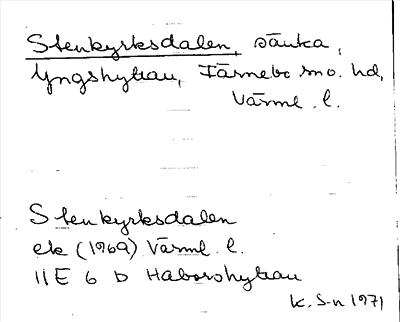 Stenkyrksdalen, sänka,
Yngshyttan, Färnebo sn o. hd,
Värml. l.
Stenkyrksdalen
ek (1969) Värml. l.
11E 6 b Haborshyttan
K. S-n 1971